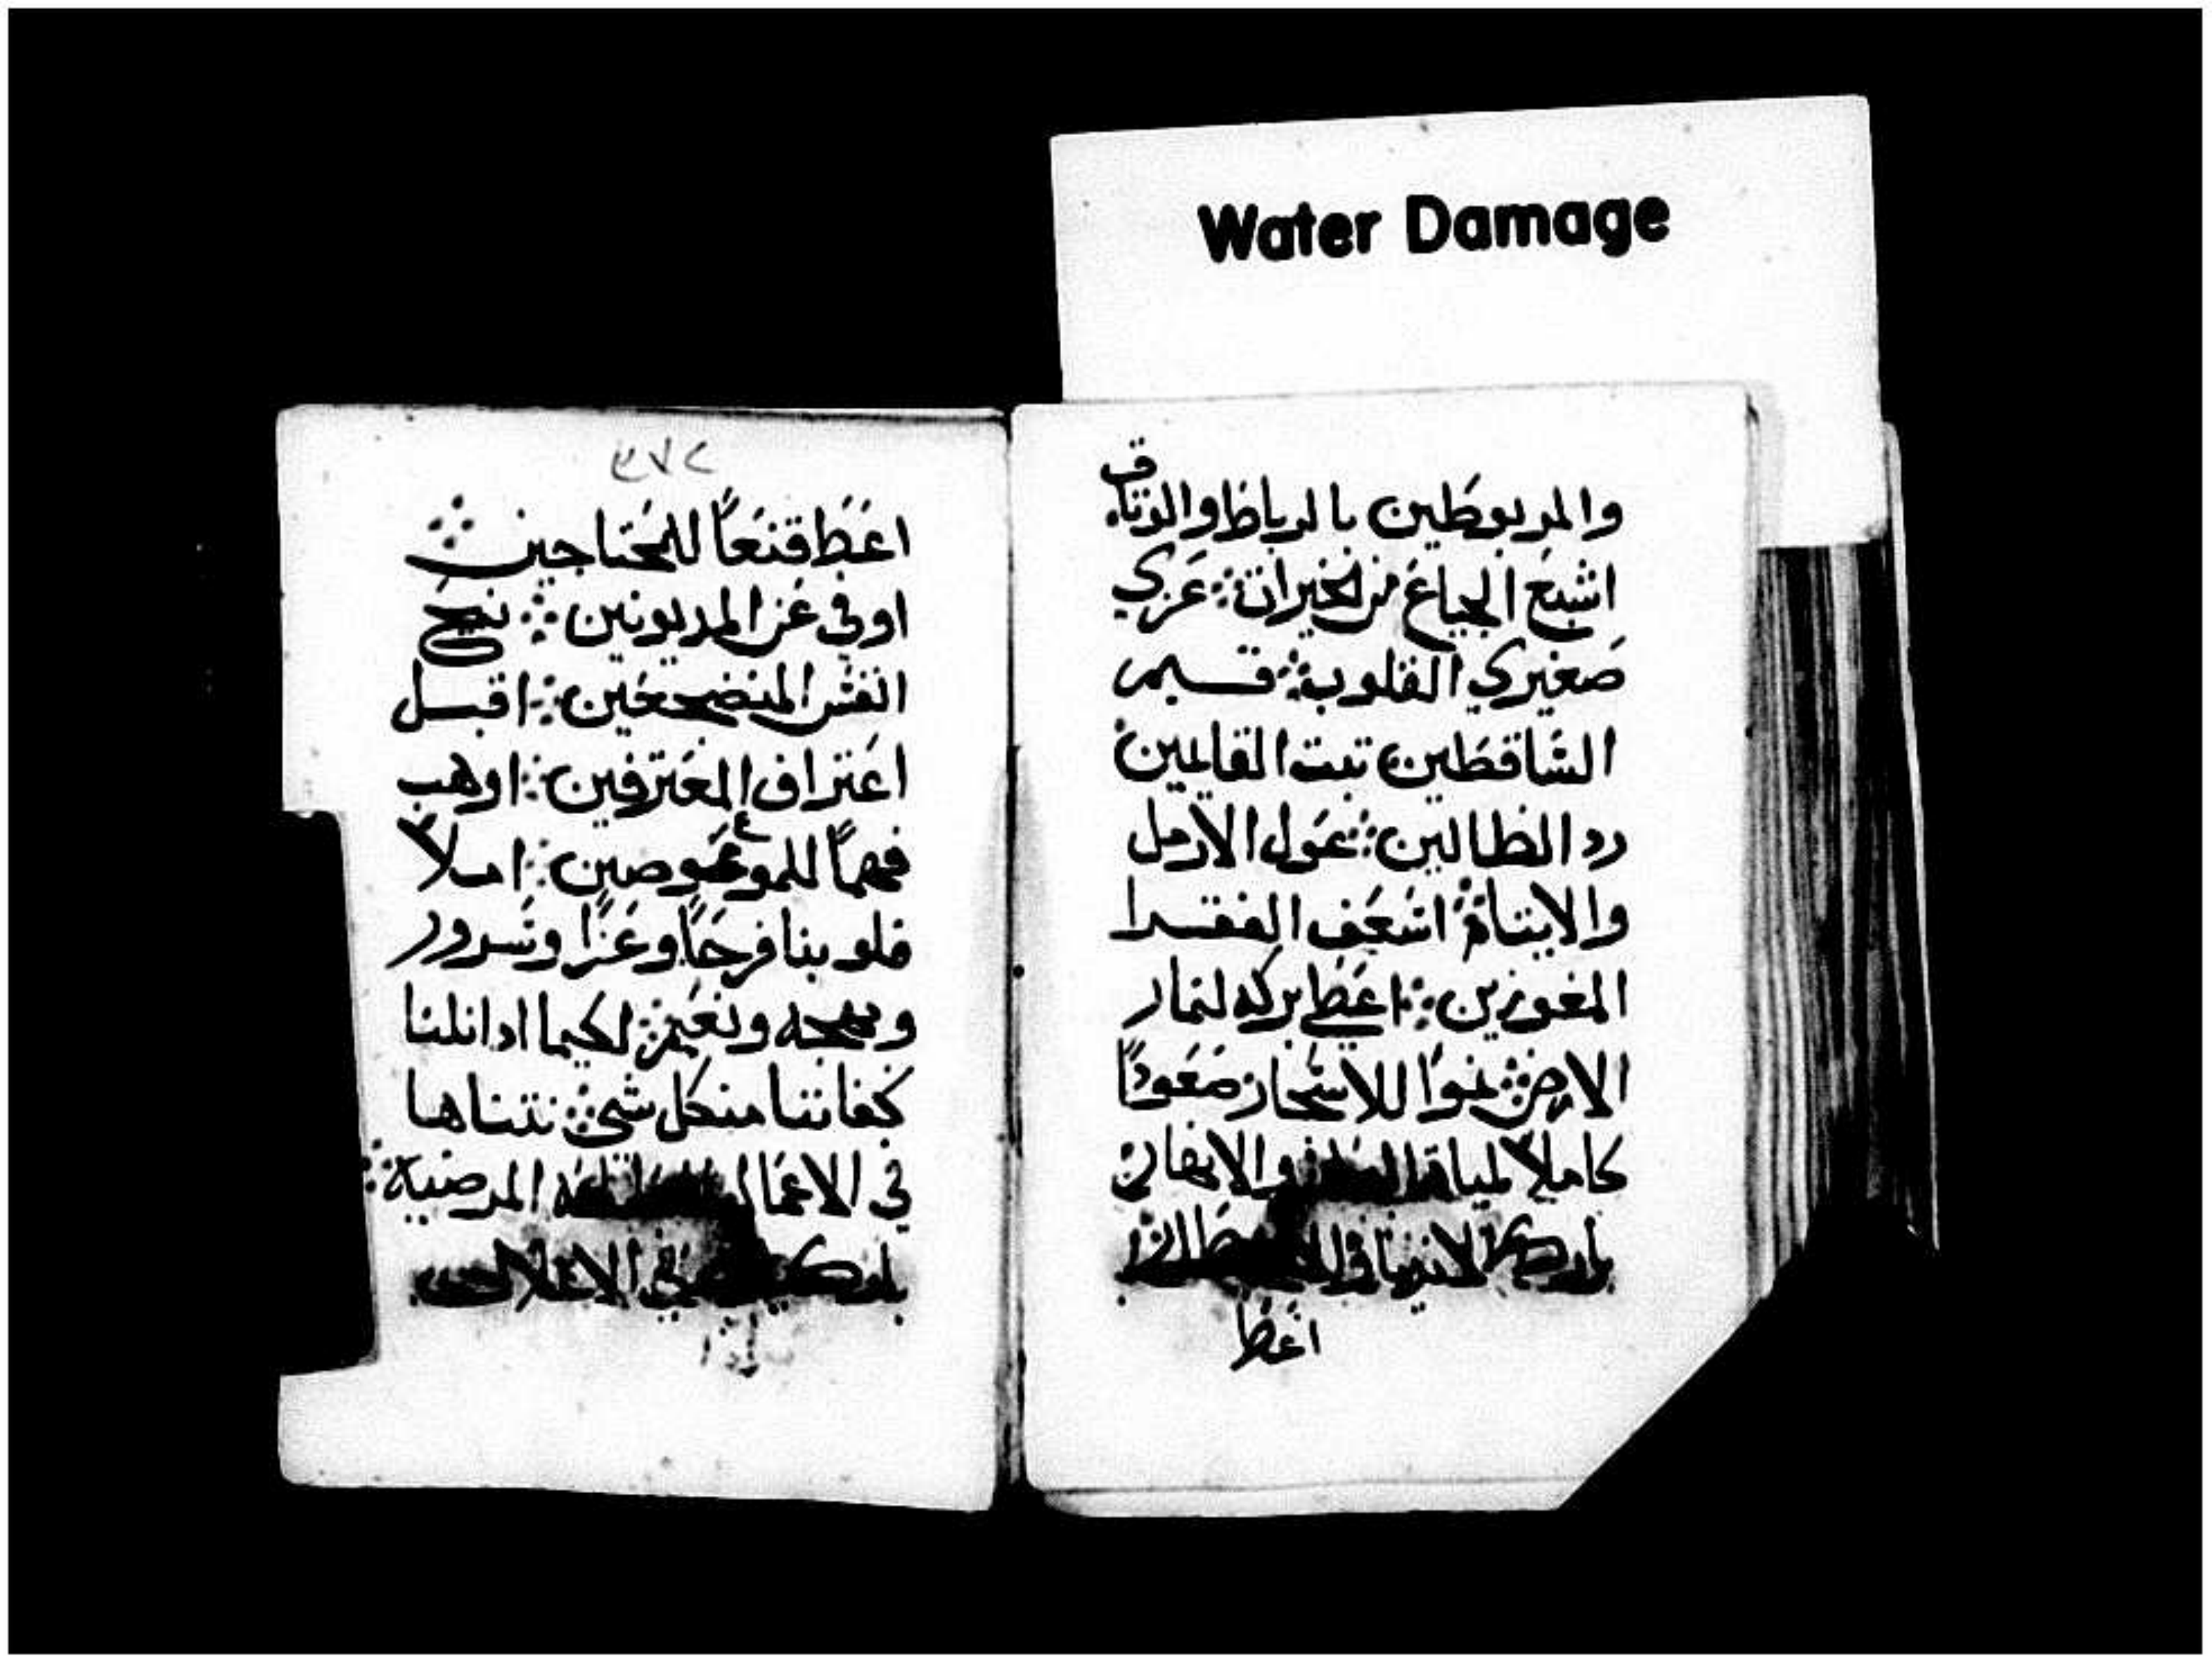 Water Damage
والمربوطين بالرباط والوثاق
اشبع الجياع من الخيرات ⁘ عزي
صغيري القلوب ⁘ قيم
الساقطين تبت القايمين
رد الظالين ⁘ عول الارمل
والايتام ⁘ اسعف الفقرا
المعوزين ⁘ اعطي بركه لتمار
الارض ⁘ نموًا للاشجار صعودًا
كاملاً لمياه والانهار
باركها
اعط
٣٧٢
اعط قنعًا للمحتاجين ⁘
اوفي عن المديونين ⁘ نيح
انفس المنضجعين ⁘ اقبل
اعتراف المعترفين ⁘ اوهب
فهمًا للموعوصين ⁘ املا
قلوبنا فرحًا وعزًا وسرور
وبهجه ونعيم ⁘ لكيما ادا نلنا
كفاتنا من كل شي ⁘ نتناها
في الاعمال المرضية ⁘
في الاعلا